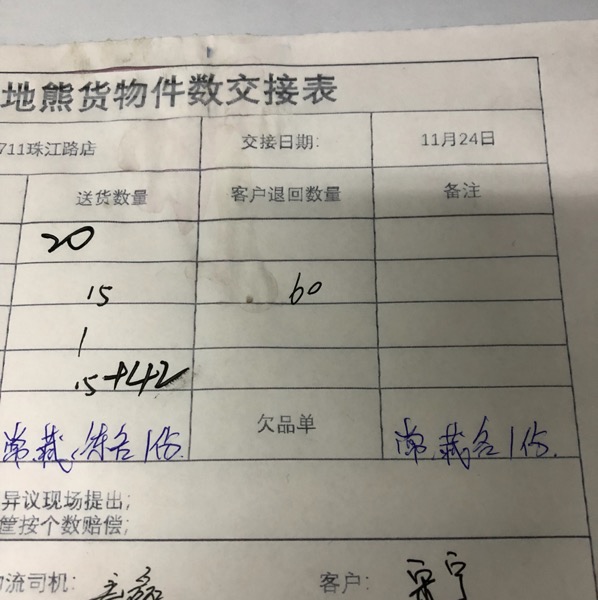 地熊货物件数交接表
711珠江路店 交接日期: 11月24日
送货数量 客户退回数量 备注
20
15 60
1
15+42
常.载 各1份. 欠品单 常.载各1份.
异议现场提出;
筐按个数赔偿;
流司机: 客户: